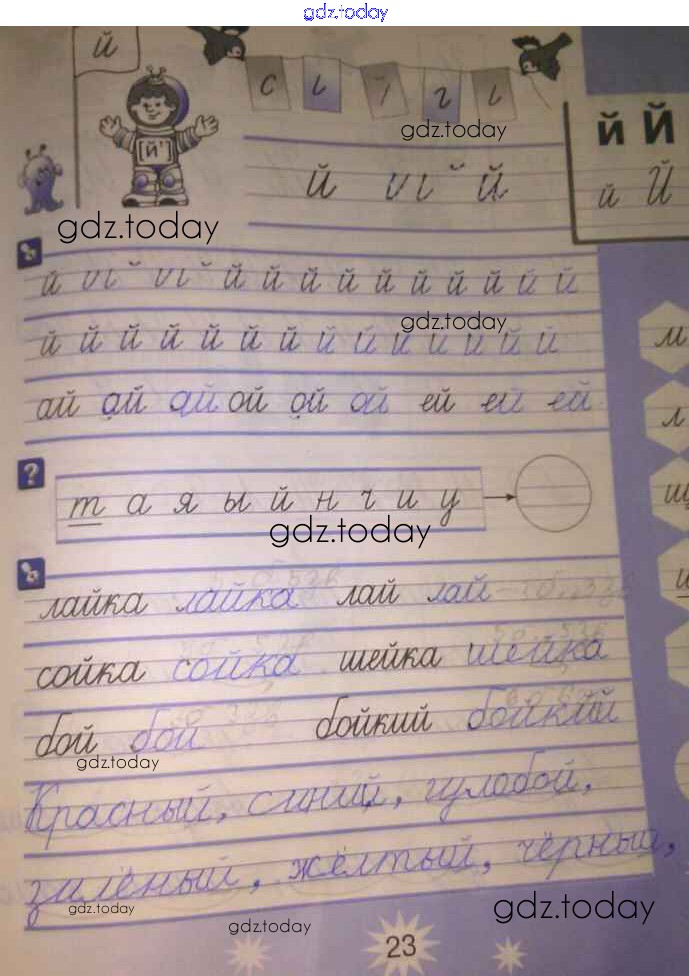 gdz.today
й
с ı ı̆ г ı
gdz.today
й Й
[й']
й ı ı ̆ й
й Й
gdz.today
й ı ı ̆ ı ı ̆ й й й й й й й й й й
gdz.today
й й й й й й й й й й й й й
м
ай ай ай ой ой ой ей ей ей
л
?
т а я ы й н ч и у
щ
gdz.today
лайка лайка лай лай
сойка сойка шейка шейка
бой бой бойкий бойкий
gdz.today
Красный, синий, гулобой,
зилёный, жёлтый, чёрный,
gdz.today
gdz.today
gdz.today
23